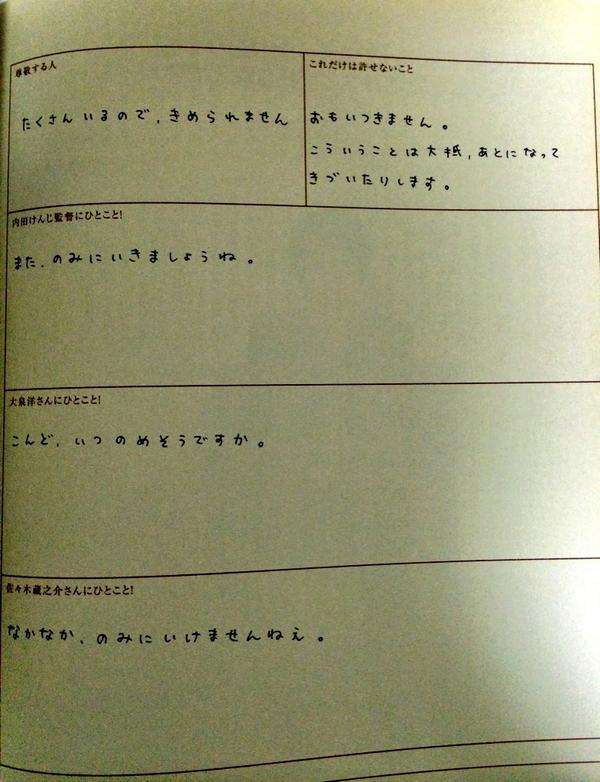 尊敬する人
たくさんいるので、きめられません
これだけは許せないこと
おもいつきません。
こういうことは大抵、あとになって
きづいたりします。
内田けんじ監督にひとこと!
また、のみにいきましょうね。
大泉洋さんにひとこと!
こんど、いつのめそうですか。
佐々木蔵之介さんにひとこと!
なかなか、のみにいけませんねえ。